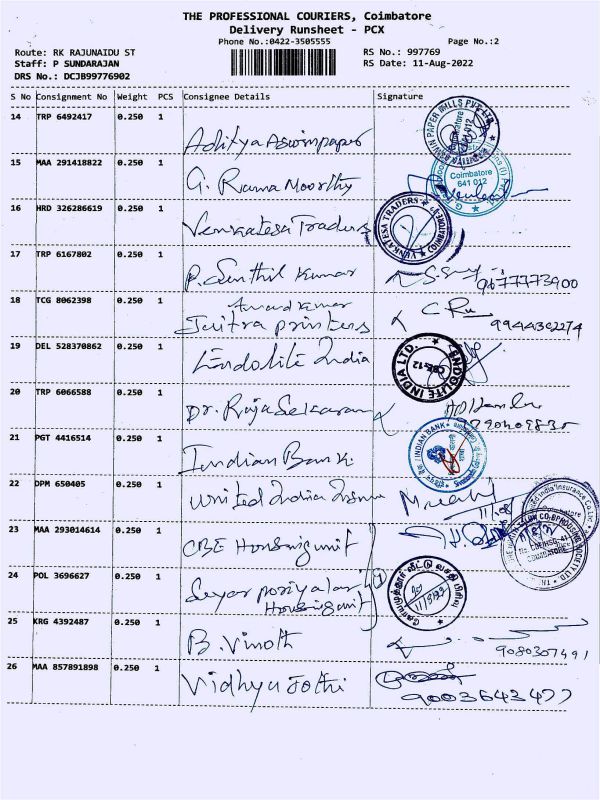 THE PROFESSIONAL COURIERS, Coimbatore
Delivery Runsheet - PCX
Phone No.:0422-3505555
Page No.:2
Route: RK RAJUNAIDU ST
RS No.: 997769
Staff: P SUNDARAJAN
RS Date: 11-Aug-2022
DRS No.: DCJB99776902
S No Consignment No Weight PCS Consignee Details Signature
14 TRP 6492417 0.250 1
Aditya Aswinpaper
15 MAA 291418822 0.250 1
G. Rama Moorthy
Coimbatore
641 012
16 HRD 326286619 0.250 1
Venkatesa Traders
VENKATESA TRADERS
COIMBATORE
17 TRP 6167802 0.250 1
P. Senthil Kumar
9677773900
18 TCG 8062398 0.250 1
Anand Kumar
printers
9944302274
19 DEL 528370862 0.250 1
Endolite India
ENDOLITE INDIA LTD.
CBE-12
20 TRP 6066588 0.250 1
Dr. Raja Sekaran
21 PGT 4416514 0.250 1
Indian Bank
INDIAN BANK
22 DPM 650405 0.250 1
United India
23 MAA 293014614 0.250 1
CBE Housing unit
24 POL 3696627 0.250 1
Housing unit
25 KRG 4392487 0.250 1
B. Vinoth
9080307491
26 MAA 857891898 0.250 1
Vidhya Jothi
9003643477